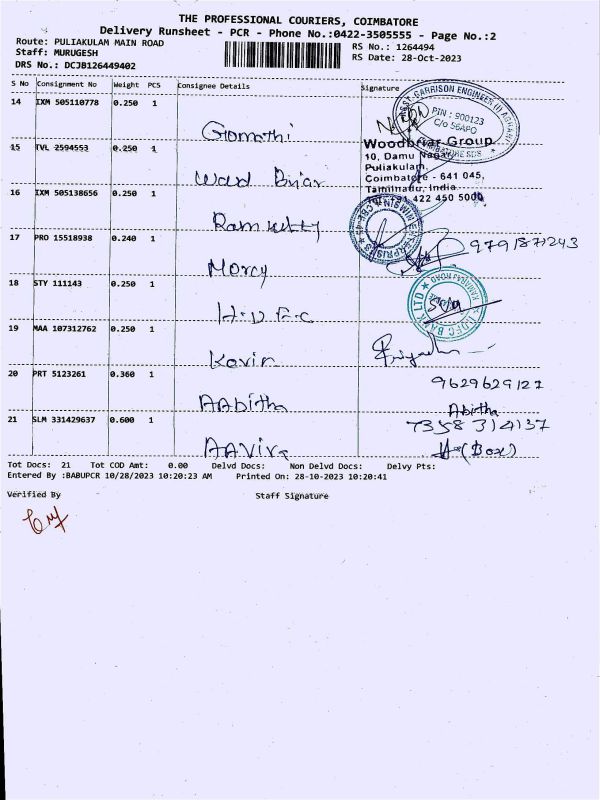 THE PROFESSIONAL COURIERS, COIMBATORE
Delivery Runsheet - PCR - Phone No.:0422-3505555 - Page No.:2
Route: PULIAKULAM MAIN ROAD
Staff: MURUGESH
DRS No.: DCJB126449402
RS No.: 1264494
RS Date: 28-Oct-2023
S No Consignment No Weight PCS Consignee Details Signature
14 IXM 505110778 0.250 1 Gomathi
GARRISON ENGINEER (I)
PIN : 900123
C/o 56APO
15 TVL 2594553 0.250 1 Wood Briar
Woodbriar Group
10, Damu Nagar,
Puliakulam,
Coimbatore - 641 045,
Tamilnadu, India
422 450 5000
16 IXM 505138656 0.250 1 Ramkutty
17 PRO 15518938 0.240 1 Mercy
9791871243
18 STY 111143 0.250 1 H.D.F.C
IDFC BANK LTD
19 MAA 107312762 0.250 1 Kavin
20 PRT 5123261 0.360 1 AAbitha
9629629127
Abitha
21 SLM 331429637 0.600 1 AAvira
7358314137
(Box)
Tot Docs: 21 Tot COD Amt: 0.00 Delvd Docs: Non Delvd Docs: Delvy Pts:
Entered By :BABUPCR 10/28/2023 10:20:23 AM Printed On: 28-10-2023 10:20:41
Verified By Staff Signature